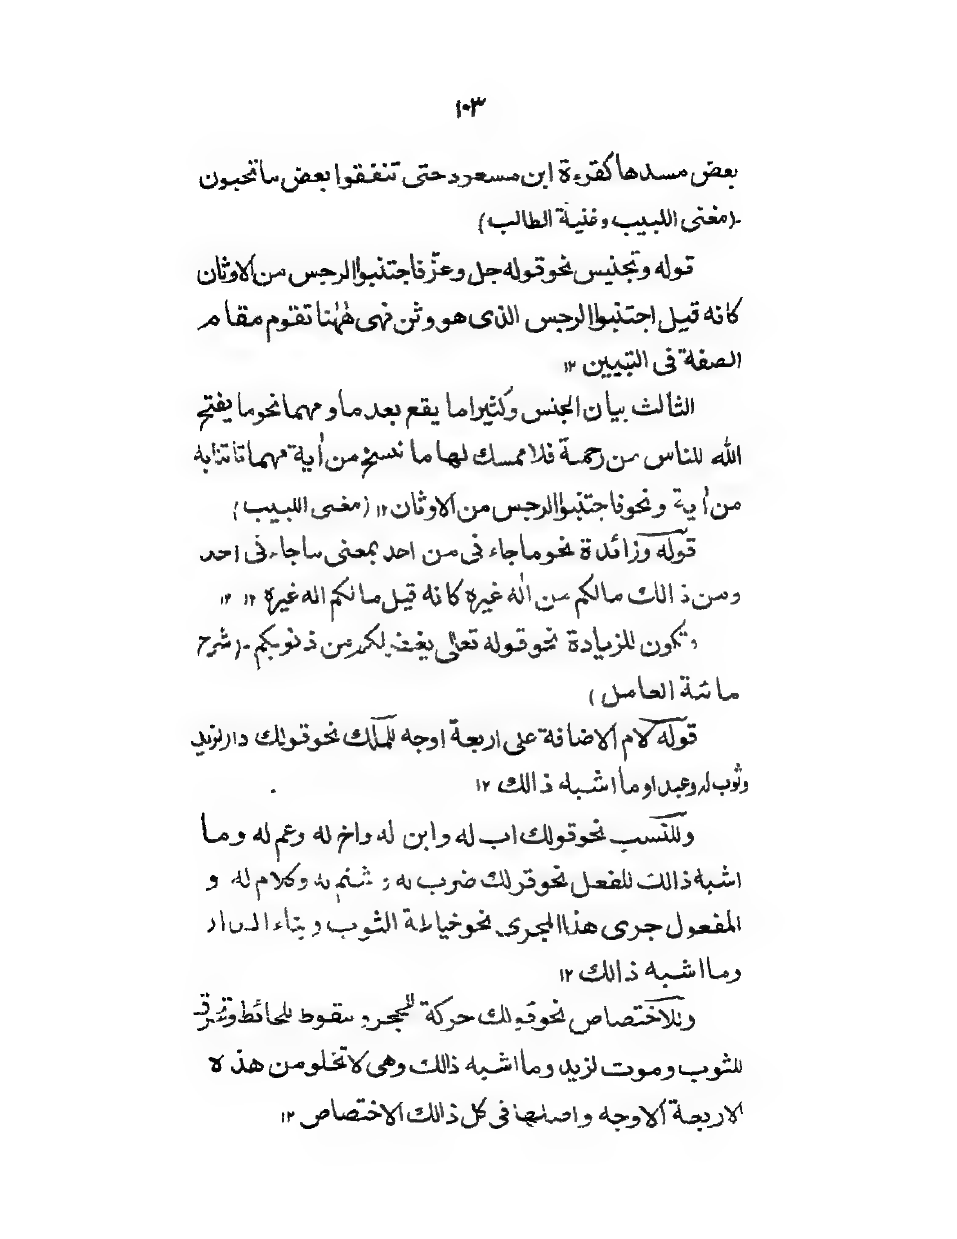 ١٠٣
بعض مسدها كقرءة ابن مسعود حتى تنفقوا بعض ما تحبون
(مغنى اللبيب وغنية الطالب)
قوله وتجنيس نحو قوله جل وعزّ فاجتنبوا الرجس من الاوثان
كانه قيل اجتنبوا الرجس الذى هو وثن فهى هٰهنا تقوم مقام
الصفة فى التبيين ١٢
الثالث بيان الجنس وكثيرا ما يقع بعد ما و مهما نحو ما يفتح
الله للناس من رحمة فلا ممسك لها ما ننسخ من أية مهما تاتنا به
من أية ونحو فاجتنبوا الرجس من الاوثان ١٢ (مغنى اللبيب)
قوله وزائدة نحو ما جاء نى من احد بمعنى ما جاء نى احد
ومن ذالك مالكم من اله غيره كانه قيل مالكم اله غيره ١٢ ١٢
وتكون للزيادة نحو قوله تعالى يغفر لكم من ذنوبكم - (شرح
مائة العامل)
قوله كلام الاضافة على اربعة اوجه للملك نحو قولك دار لزيد
وثوب له وعبد او ما اشبه ذالك ١٢
وللنسب نحو قولك اب له وابن له واخ له وعم له وما
اشبه ذالك للفعل نحو قولك ضرب له و شتم له وكلام له و
المفعول جرى هذا المجرى نحو خياطة الثوب وبناء الدار
وما اشبه ذالك ١٢
وللاختصاص نحو قولك حركة للحجر و سقوط للحائط وتمزق
للثوب وموت لزيد وما اشبه ذالك وهى لا تخلو من هذه
الاربعة الاوجه واصلها فى كل ذالك الاختصاص ١٢